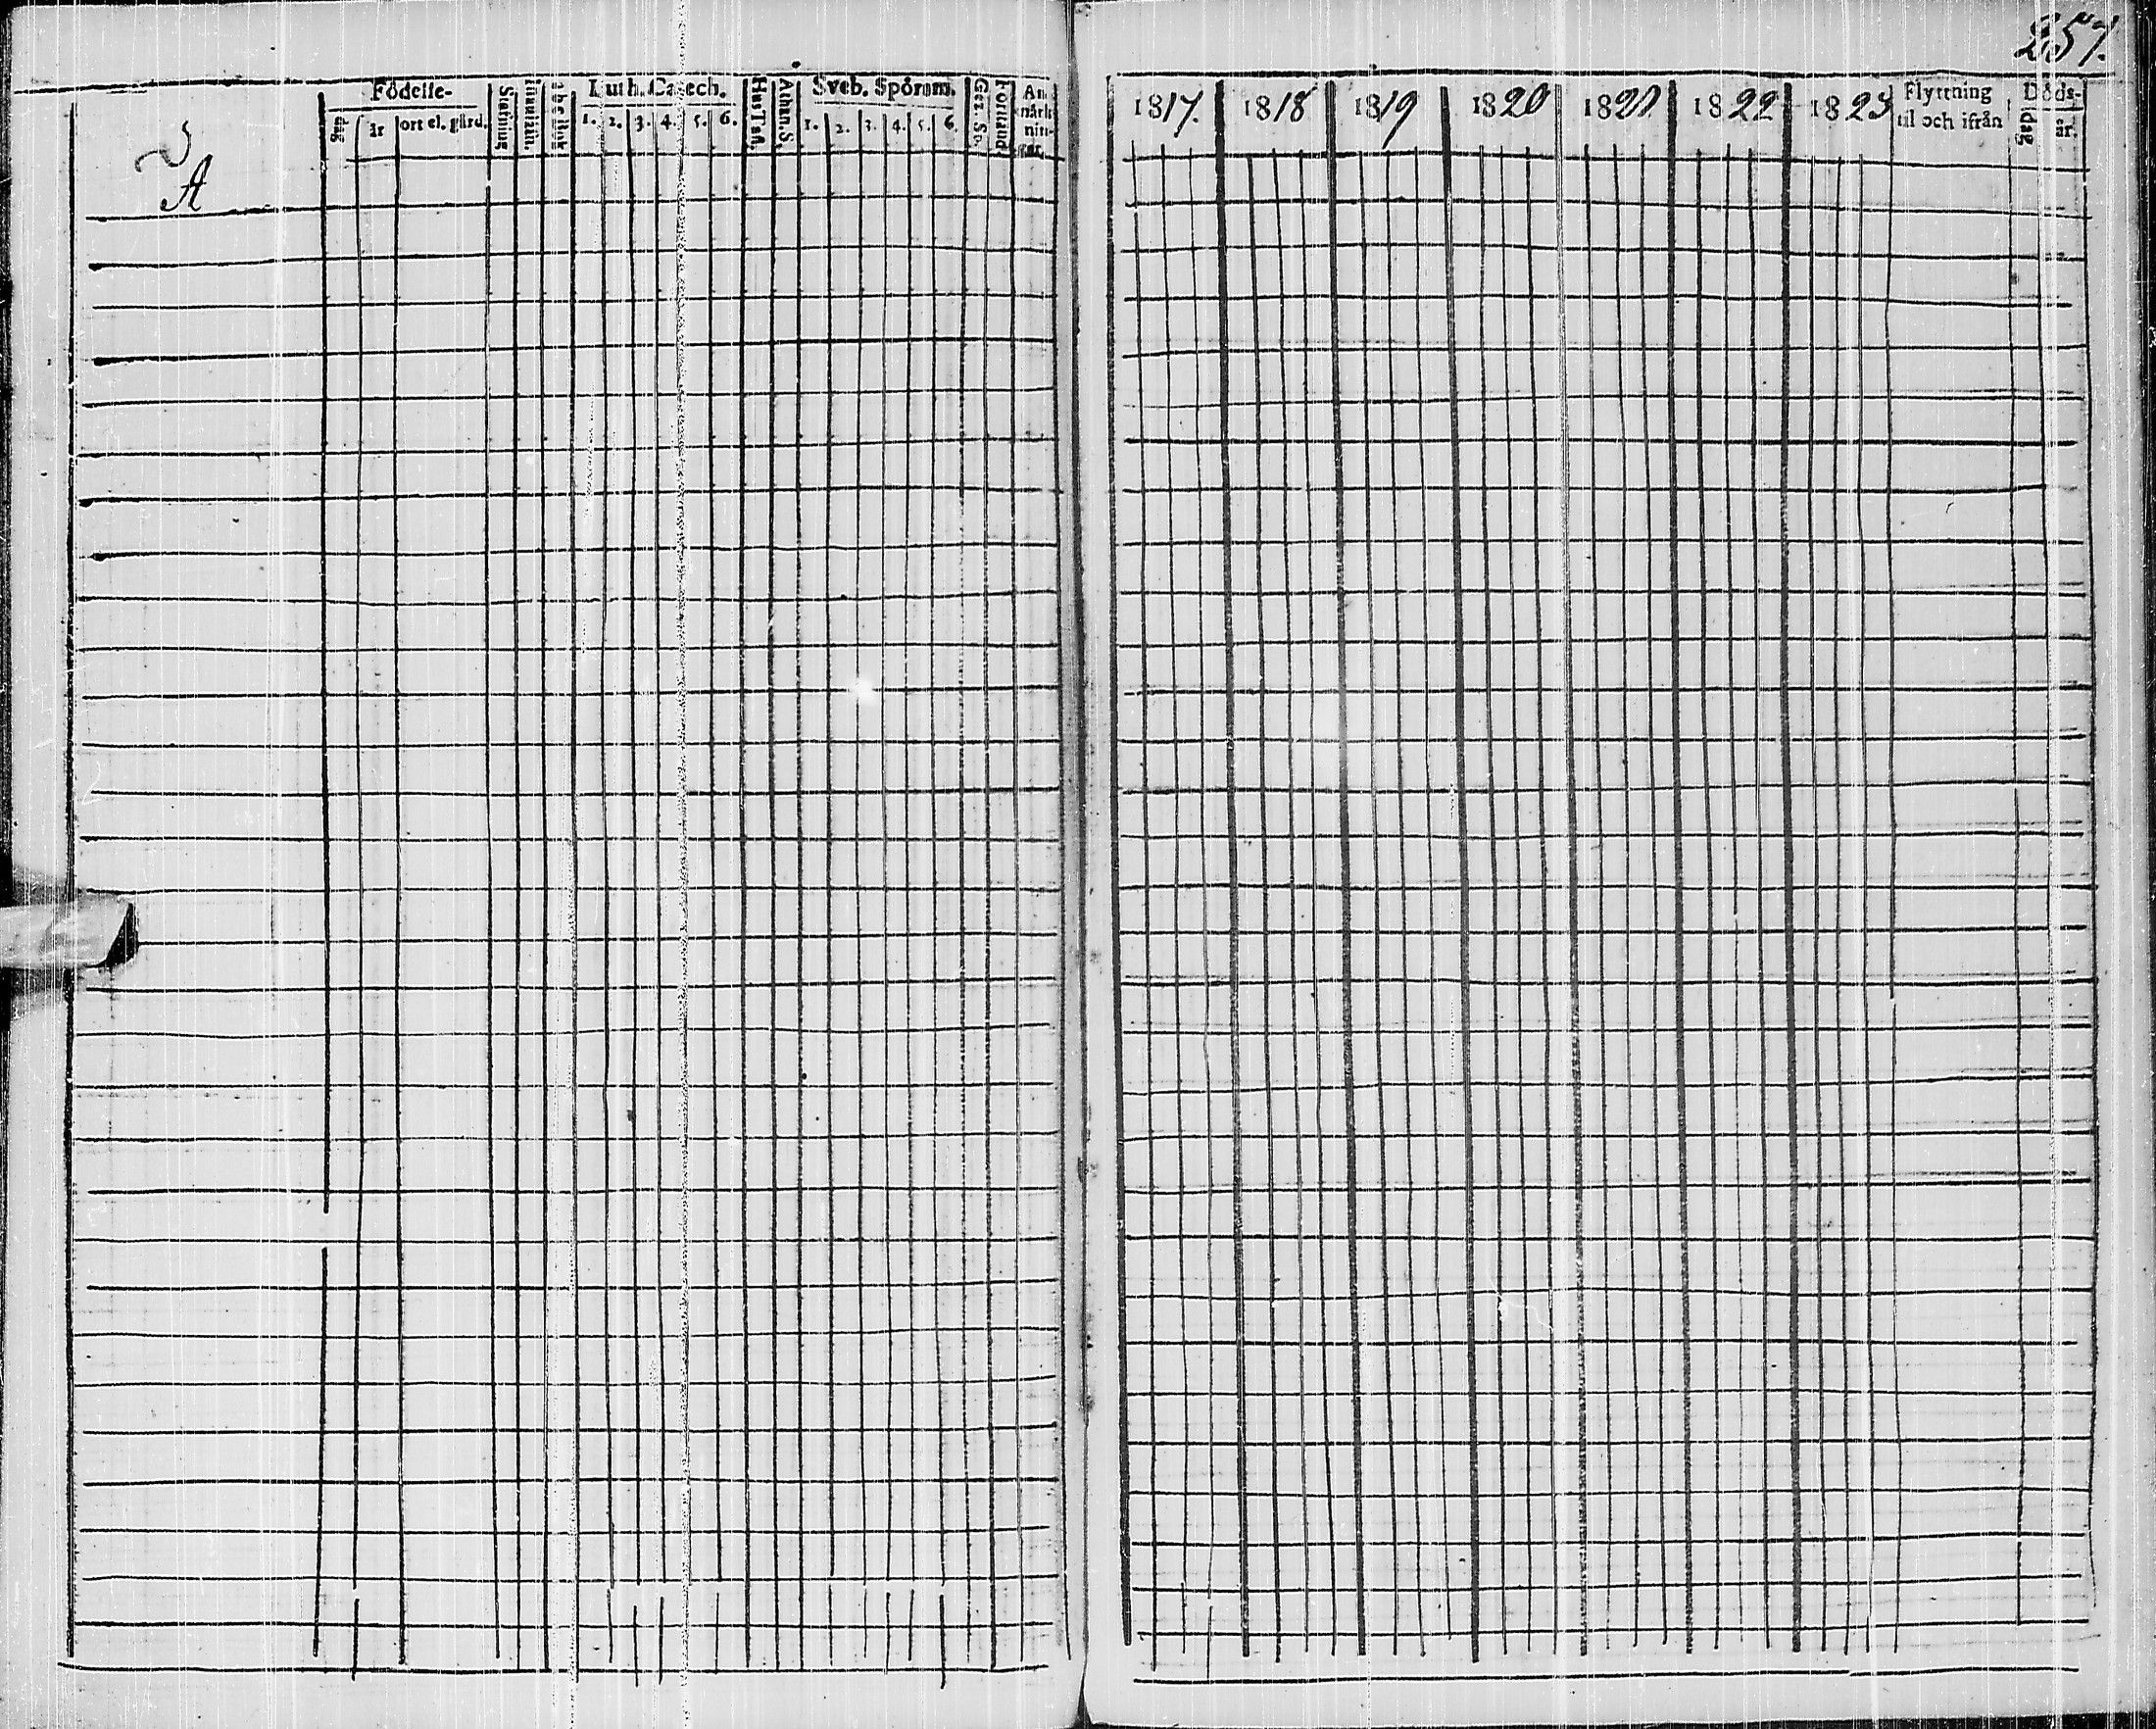 257.
Födelse-
dag
år
ort el. gård.
Stafning
Luth. Catech.
1. 2. 3. 4. 5. 6.
Hus Tafl.
Athan. S.
Sveb. Spörsm.
1. 2. 3. 4. 5. 6.
Gez. Sp.
Förstånd
An
märk
nin-
gar.
1817. 1818 1819 1820 1821 1822 1823
Flyttning
til och ifrån
Döds-
dag
år.
A